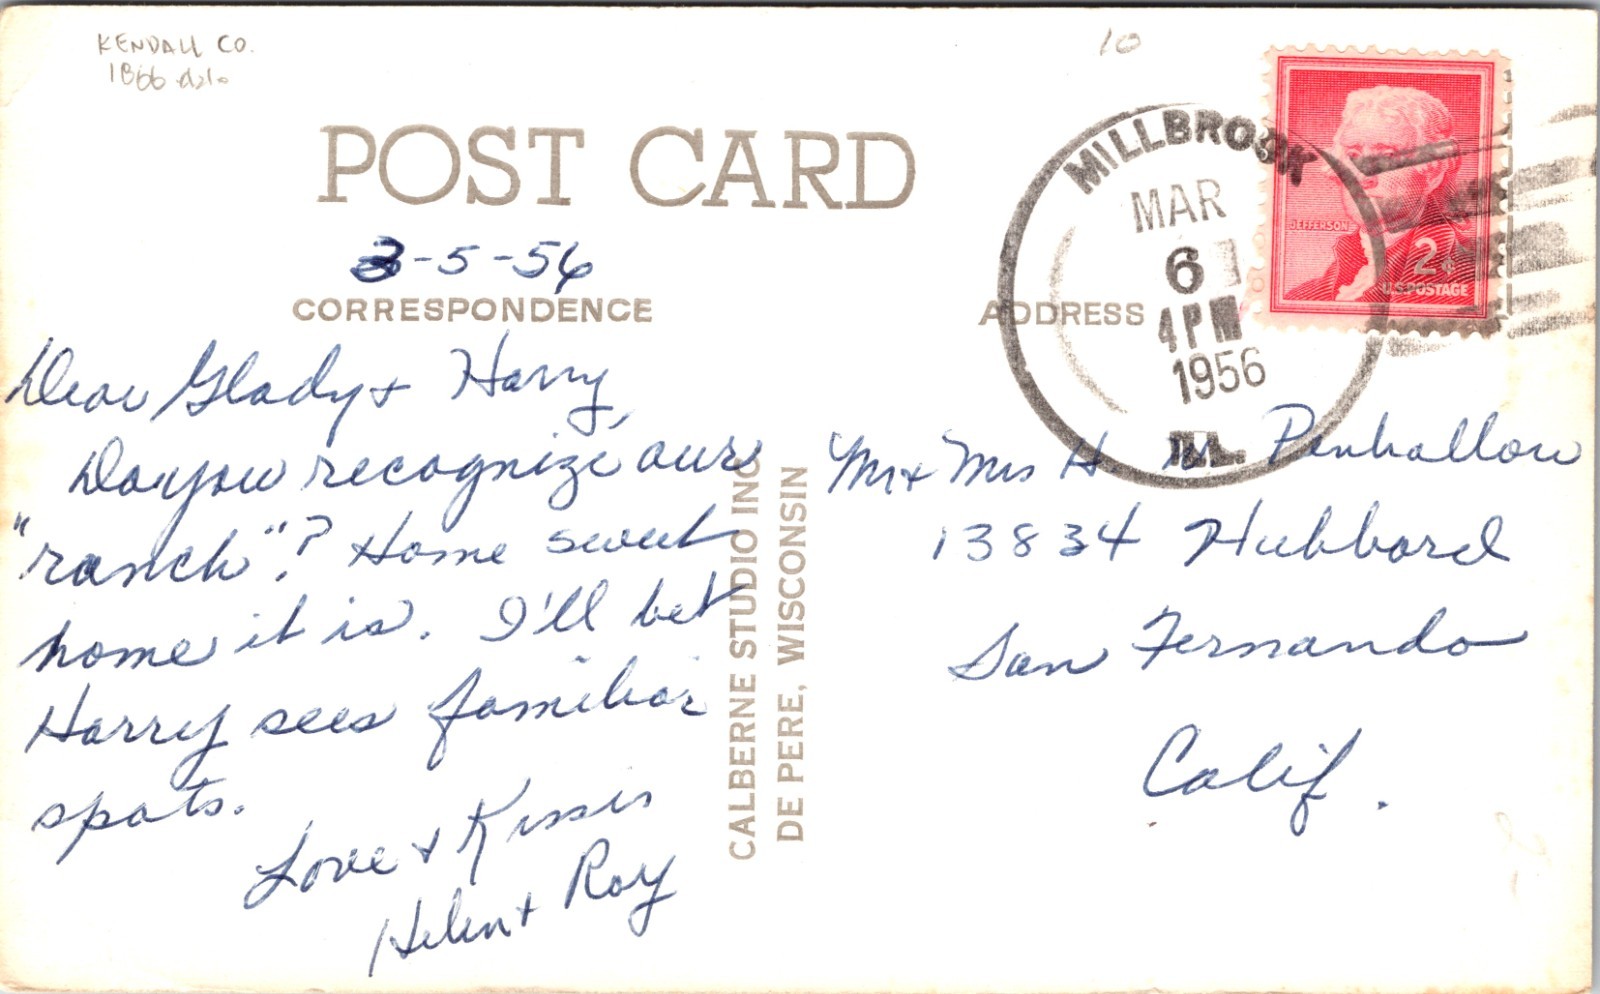 KENDALL CO.
1866 dslo
10
POST CARD
3-5-56
CORRESPONDENCE
ADDRESS
MILLBROOK
MAR
6
4 PM
1956
ILL.
JEFFERSON
2¢
U.S. POSTAGE
Dear Glady + Harry,
Do you recognize our
"ranch"? Home sweet
home it is. I'll bet
Harry sees familiar
spots.
Love + Kisses
Helen + Roy
CALBERNE STUDIO INC
DE PERE, WISCONSIN
Mr + Mrs H. W. Penhallow
13834 Hubbard
San Fernando
Calif.